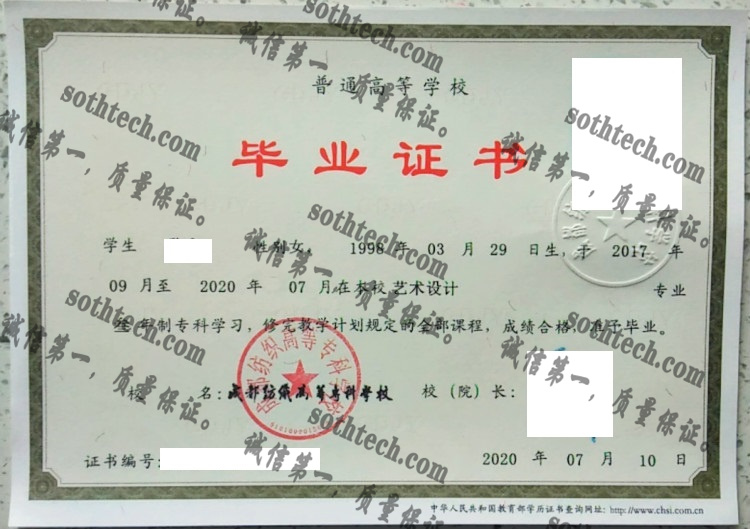 普通高等学校
毕业证书
学生 性别女，1998年03月29日生，于2017年
09月至2020年07月在本校艺术设计 专业
年制专科学习，修完教学计划规定的全部课程，成绩合格，准予毕业。
校 名：成都纺织高等专科学校 校（院）长：
成都纺织高等专科学校
证书编号： 2020年07月10日
中华人民共和国教育部学历证书查询网址：http://www.chsi.com.cn
sothtech.com
诚信第一，质量保证。
sothtech.com
诚信第一，质量保证。
sothtech.com
诚信第一，质量保证。
sothtech.com
诚信第一，质量保证。
sothtech.com
诚信第一，质量保证。
sothtech.com
诚信第一，质量保证。
sothtech.com
诚信第一，质量保证。